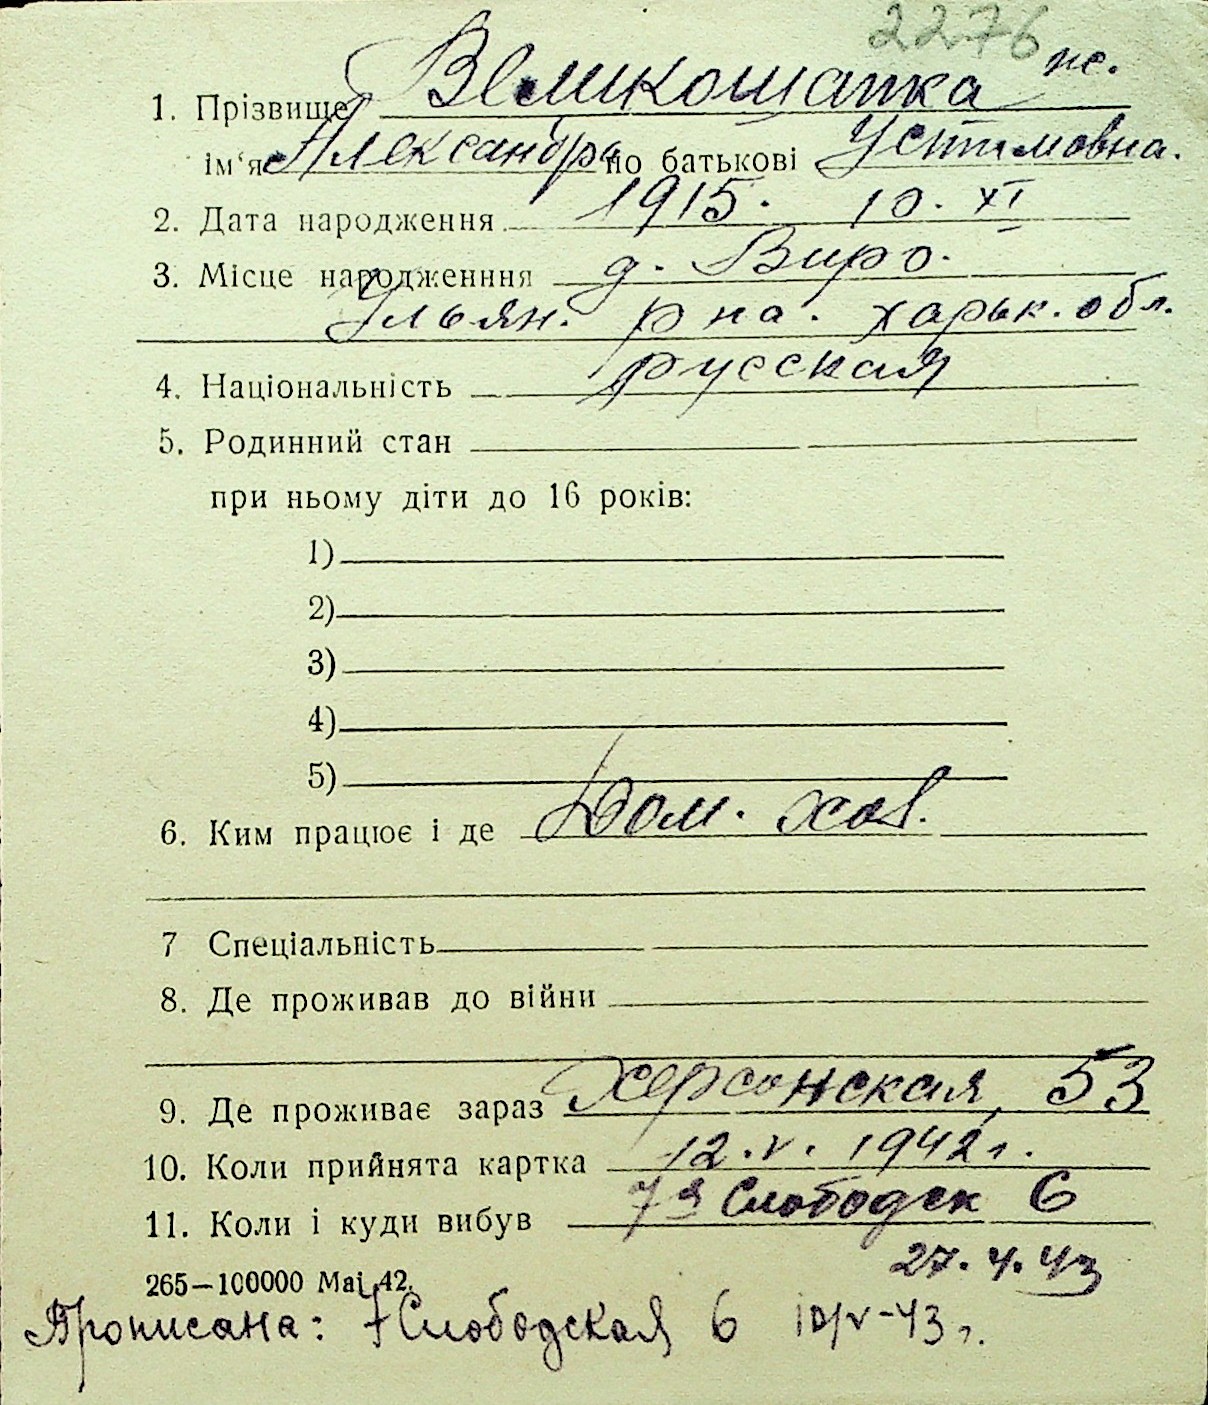 2276
1. Прізвище Великошапка же.
ім'я Александра по батькові Устимовна.
2. Дата народження 1915. 10. XI
3. Місце народженння д. Виро.
Ульян. р на. харьк. обл.
4. Національність русская
5. Родинний стан
при ньому діти до 16 років:
1)
2)
3)
4)
5)
6. Ким працює і де Дом. хоз.
7 Спеціальність
8. Де проживав до війни
9. Де проживає зараз Херсонская, 53
10. Коли прийнята картка 12. V. 1942 г.
11. Коли і куди вибув 7я Слободск 6
27. 4. 43
265—100000 Mai 42.
Прописана: 7 Слободская 6 10/V-43 г.